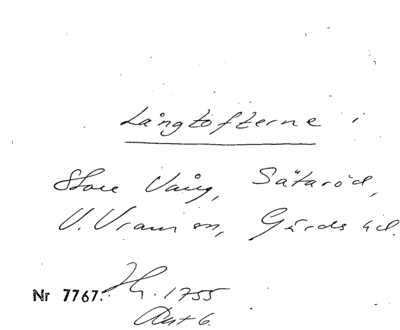 Långtofterne i
Store Vång, Sätaröd,
V. Vram sn, Gärds hd.
Nr 7767. 1755
Akt 6.